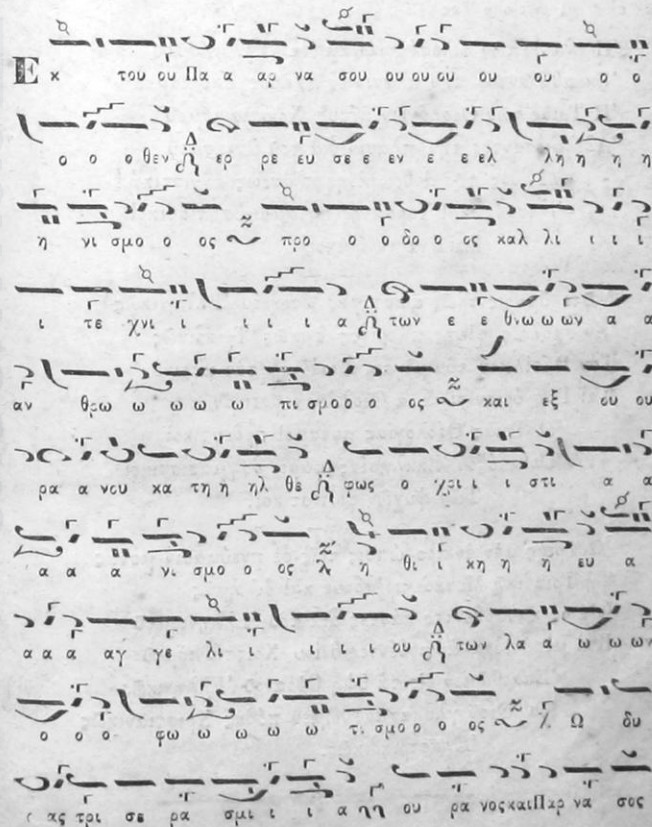 Ε κ του ου Πα α αρ να σου ου ου ου ου ου ο ο
ο ο ο θεν ερ ρε ευ σε ε εν ε ε ελ λη η η η
η νι σμο ο ος προ ο ο δρο ο ος καλ λι ι ι ι
ι τε χνι ι ι ι ι α των ε ε θνω ω ων α α
αν θρω ω ω ω ω ω πι σμο ο ο ος και εξ ου ου
ρα α νου κα τη η ηλ θε φως ο χρι ι ι στι α α
α α α νι σμο ο ος λ η θι ι κη η η ευ α
α α α αγ γε λι ι ι ι ι ου των λα α ω ω ων
ο ο ο φω ω ω ω ω τι σμο ο ο ος χ Ω δυ
ας τρι σε ρα σμι ι ι α ου ρα νος και Παρ να σος